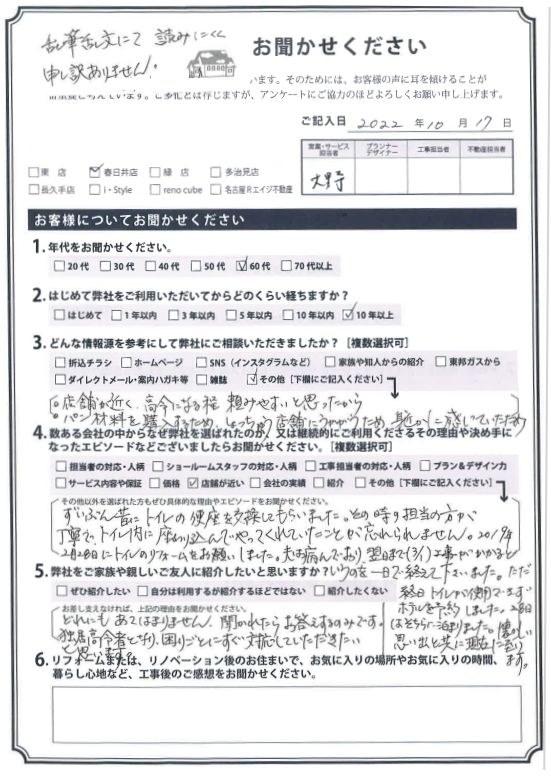 乱筆乱文にて 読みにくく
申し訳ありません。
お聞かせください
います。そのためには、お客様の声に耳を傾けることが
ますが、アンケートにご協力のほどよろしくお願い申し上げます。
ご記入日 2022 年 10 月 17 日
営業・サービス担当者 プランナーデザイナー 工事担当者 不動産担当者
大野
□東 店 ☑春日井店 □緑 店 □多治見店
□長久手店 □i・Style □reno cube □名古屋Rエイジ不動産
お客様についてお聞かせください
1.年代をお聞かせください。
□20代 □30代 □40代 □50代 ☑60代 □70代以上
2.はじめて弊社をご利用いただいてからどのくらい経ちますか？
□はじめて □1年以内 □3年以内 □5年以内 □10年以内 ☑10年以上
3.どんな情報源を参考にして弊社にご相談いただきましたか？［複数選択可］
□折込チラシ □ホームページ □SNS（インスタグラムなど） □家族や知人からの紹介 □東邦ガスから
□ダイレクトメール・案内ハガキ等 □雑誌 ☑その他［下欄にご記入ください］
○店舗が近く、高令になる程 頼みやすいと思ったから
○パン材料を購入するため、しょっちゅう店舗にうかがうため、身近に感じていたため
4.数ある会社の中からなぜ弊社を選ばれたのか、又は継続的にご利用くださるその理由や決め手に
なったエピソードなどございましたらお聞かせください。［複数選択可］
□担当者の対応・人柄 □ショールームスタッフの対応・人柄 □工事担当者の対応・人柄 □プラン＆デザイン力
□サービス内容や保証 □価格 ☑店舗が近い □会社の実績 □紹介 □その他［下欄にご記入ください］
その他以外を選ばれた方もぜひ具体的な理由やエピソードをお聞かせください。
ずいぶん昔にトイレの便座を交換してもらいました。その時の担当の方が
丁寧で、トイレ内に座り込んでやってくれていたことが忘れられません。2019年
2月28日にトイレのリフォームをお願いしました。夫は病んでおり 翌日まで(3/1)工事がかかると
いうのを一日で終えて下さいました。ただ
終日トイレが使用できず
ホテルを予約しました。28日
はそちらに泊りました。懐かしい
思い出と共に現在に至り
ます。
5.弊社をご家族や親しいご友人に紹介したいと思いますか？
□ぜひ紹介したい □自分は利用するが紹介するほどではない □紹介したくない
お差し支えなければ、上記の理由をお聞かせください。
どれにもあてはまりません。聞かれたらお答えするのみです。
独居高令者となり、困りごとにすぐ対応していただきたい
と思います。
6.リフォームまたは、リノベーション後のお住まいで、お気に入りの場所やお気に入りの時間、
暮らし心地など、工事後のご感想をお聞かせください。